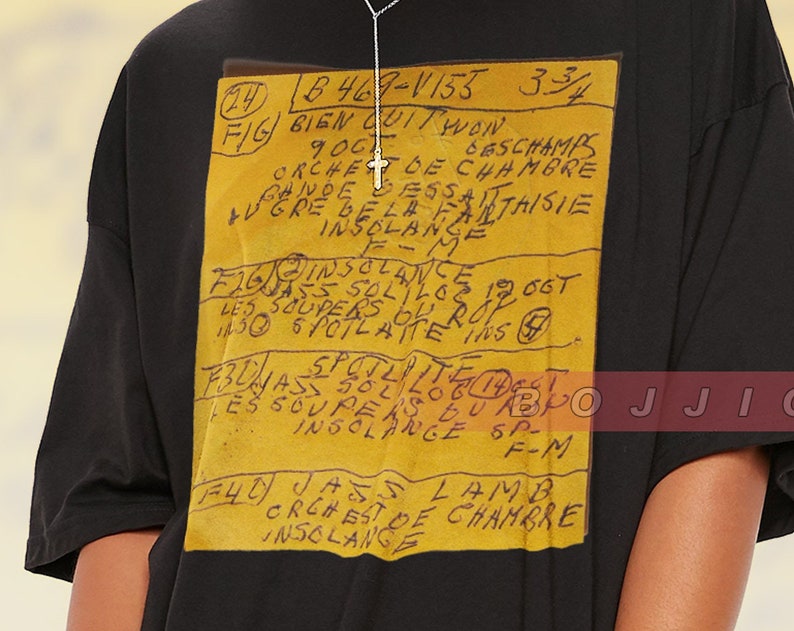 24 B 469-V155 3 3/4
F1G BIEN CUIT MON
9 OCT DESCHAMPS
ORCHEST DE CHAMBRE
BANDE DESSAIT
AU GRE DE LA FANTAISIE
INSOLANGE
F-M
F2G 2 INSOLANCE
JASS SOLILOG 19 OCT
LES SOUPERS DU ROY
INS SPOTLAITE INS
F3D SPOTLAITE
JASS SOLILOG 14 OCT
LES SOUPERS DU ROY
INSOLANGE SP-
F-M
BOJJIO
F4D JASS LAMB
ORCHEST DE CHAMBRE
INSOLANGE